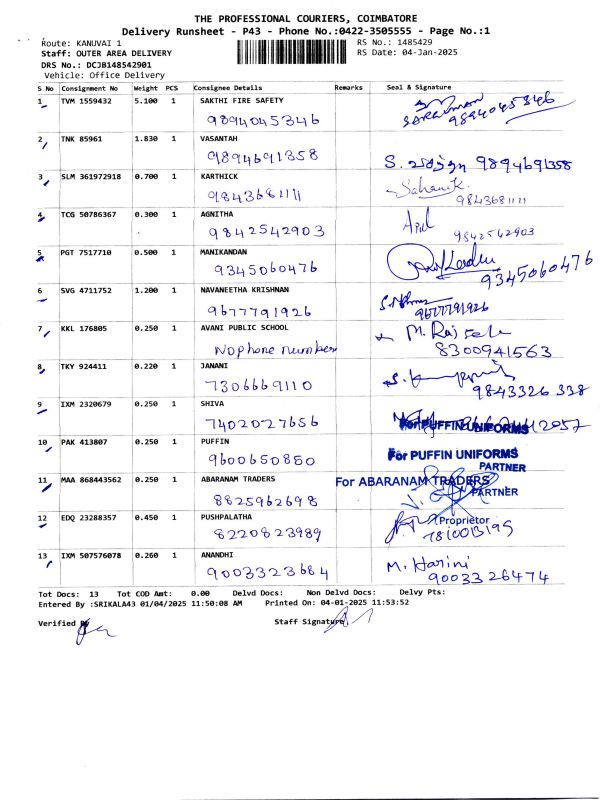 THE PROFESSIONAL COURIERS, COIMBATORE
Delivery Runsheet - P43 - Phone No.:0422-3505555 - Page No.:1
Route: KANUVAI 1 RS No.: 1485429
Staff: OUTER AREA DELIVERY RS Date: 04-Jan-2025
DRS No.: DCJB148542901
Vehicle: Office Delivery
S No Consignment No Weight PCS Consignee Details Remarks Seal & Signature
1 TVM 1559432 5.100 1 SAKTHI FIRE SAFETY
9894045346 9894045346
2 TNK 85961 1.830 1 VASANTAH
9894691358 S. 9894691358
3 SLM 361972918 0.700 1 KARTHICK
9843681111 9843681111
4 TCG 50786367 0.300 1 AGNITHA
9842542903 9842542903
5 PGT 7517710 0.500 1 MANIKANDAN
9345060476 9345060476
6 SVG 4711752 1.200 1 NAVANEETHA KRISHNAN
9677791926 9677791926
7 KKL 176805 0.250 1 AVANI PUBLIC SCHOOL
No phone number 8300941563
8 TKY 924411 0.220 1 JANANI
7306669110 9843326338
9 IXM 2320679 0.250 1 SHIVA
7402027656 For PUFFIN UNIFORMS
10 PAK 413807 0.250 1 PUFFIN For PUFFIN UNIFORMS
9600650850 PARTNER
11 MAA 868443562 0.250 1 ABARANAM TRADERS For ABARANAM TRADERS
8825962698 PARTNER
12 EDQ 23288357 0.450 1 PUSHPALATHA Proprietor
8220823989
13 IXM 507576078 0.260 1 ANANDHI M. Harini
9003323684 9003326474
Tot Docs: 13 Tot COD Amt: 0.00 Delvd Docs: Non Delvd Docs: Delvy Pts:
Entered By :SRIKALA43 01/04/2025 11:50:08 AM Printed On: 04-01-2025 11:53:52
Verified By Staff Signature